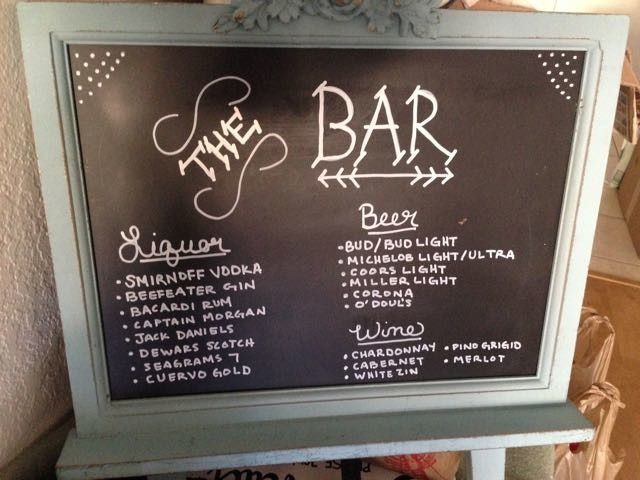 THE BAR
Liquor
• SMIRNOFF VODKA
• BEEFEATER GIN
• BACARDI RUM
• CAPTAIN MORGAN
• JACK DANIELS
• DEWARS SCOTCH
• SEAGRAMS 7
• CUERVO GOLD
Beer
• BUD/BUD LIGHT
• MICHELOB LIGHT/ULTRA
• COORS LIGHT
• MILLER LIGHT
• CORONA
• O'DOUL'S
Wine
• CHARDONNAY • PINO GRIGIO
• CABERNET • MERLOT
• WHITE ZIN